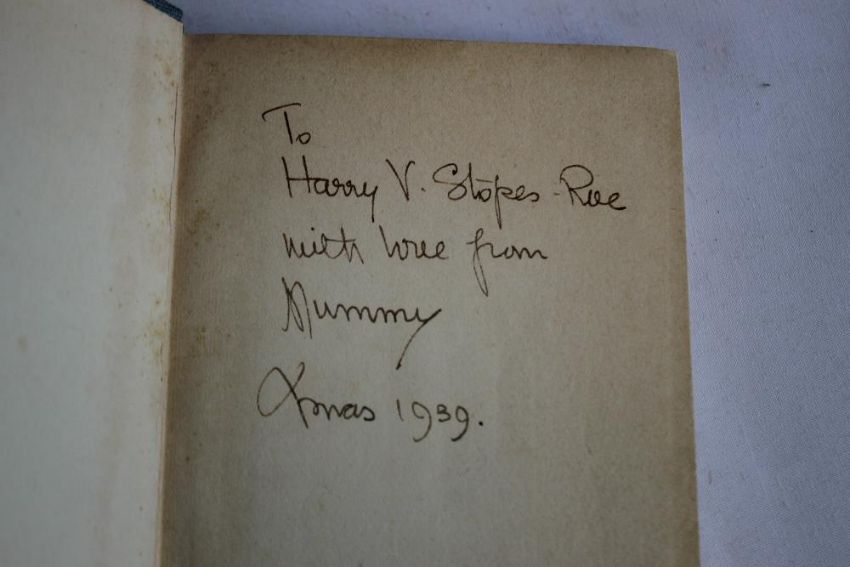 To
Harry V. Stopes-Roe
with love from
Mummy
Xmas 1939.